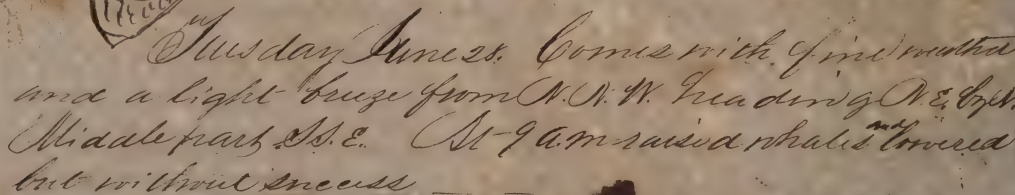 Tuesday June 28. Comes with fine weather
and a light breeze from N. N. W. heading N. E. by N.
Middle part S.S.E. At 9 a.m raised whales and lowered
but without success